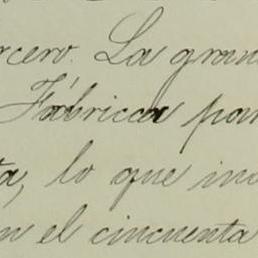 rcero. La gran
Fábricca par
ta, lo que ind
n el cincuenta